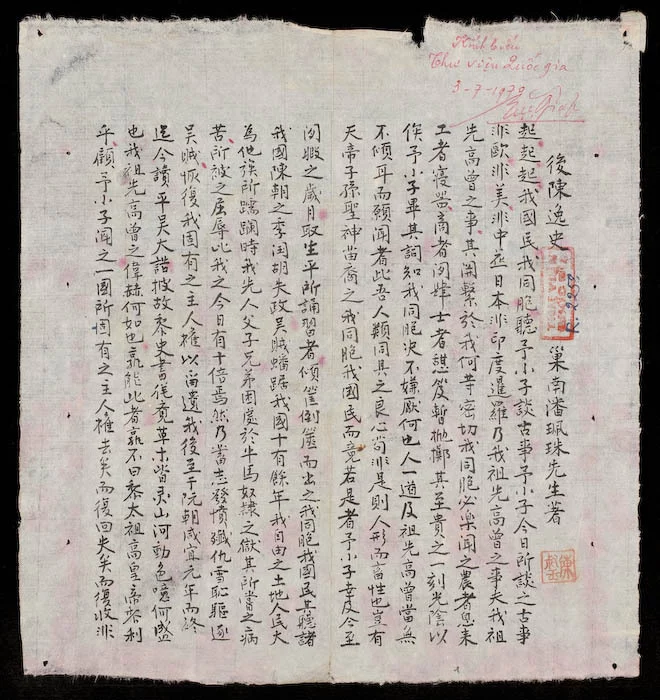 Kính biếu
Thư viện Quốc gia
3-7-1979
後陳逸史 巢南潘珮珠先生著
起起起我國民我同胞聽予小子談古事予小子今日所談之古事
非歐洲美洲中華日本非印度暹羅乃我祖先高曾之事夫我祖
先高曾之事其關繫於我何等密切我同胞必樂聞之農者息耒
工者寢器商者閉肆士者笈暫拋擲其至貴之一刻光陰以
俟予小子畢其詞知我同胞决不嫌厭何也人一道及祖先高曾當無
不傾耳而願聞者此吾人類同具之良心尚非是則人形而畜性也豈有
天帝子孫聖神苗裔之我同胞我國民而竟若是者予小子幸及今至
閒暇之歲月取生平所誦習者傾筐倒篋而出之我同胞我國民其聽諸
我國陳朝之季閏胡失政吳賊蟠踞我國十有餘年我自由之土地人民大
為他族所蹂躪時我先人父子兄弟困處於牛馬奴隸之獄其所嘗之病
苦所被之屈辱比我之今日有十倍焉然乃奮志發憤殲仇雪恥驅逐
吳賊恢復我固有之主人權以留遺我後至于阮朝咸宜元年而終
迄今讀平吳大誥披故黎史書猶覺草木皆灵山河動色噫何盛
也我祖先高曾之偉赫何如也孰能此者孰不曰黎太祖高皇帝黎利
乎顧予小子聞之一國所固有之主人權去矣而復回失矣而復收非